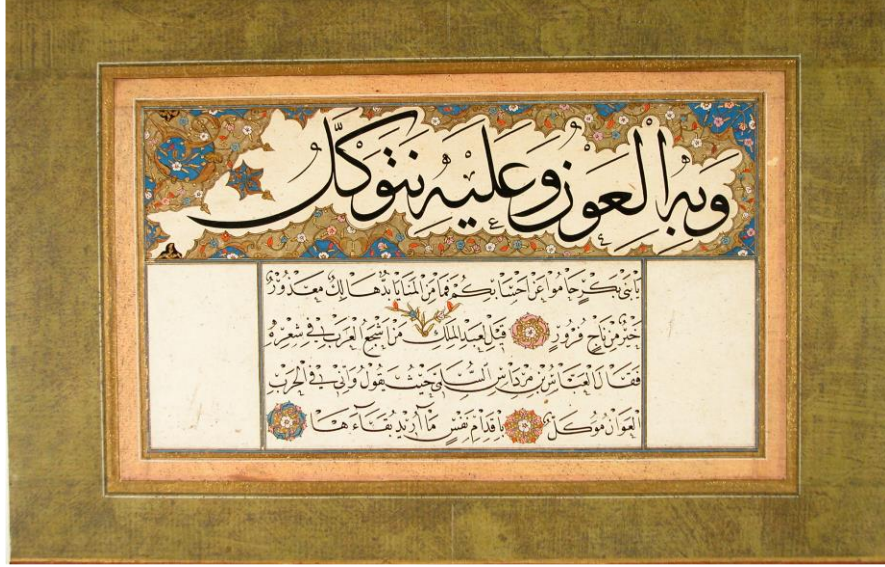 وَبِهِ الْعَوْنُ وَعَلَيْهِ نَتَوَكَّلُ
يا بني بكر حاموا عن احسابكم فما من المنايا بد هالك معذور
خير من ناج فرور قيل لعبد الملك من اشجع العرب في شعره
فقال العباس بن مرداس السلمي حيث يقول واني في الحرب
العوان موكل باقدام نفس ما اريد بقاءها